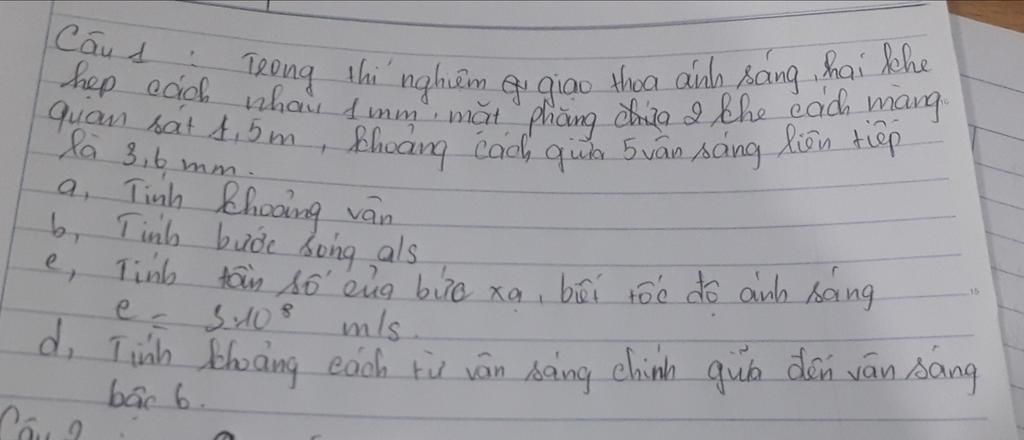 Câu 1 : Trong thí nghiệm giao thoa ánh sáng, hai khe
hẹp cách nhau 1mm, mặt phẳng chứa 2 khe cách màng
quan sát 1,5m, khoảng cách giữa 5 vân sáng liên tiếp
là 3,6 mm.
a, Tính khoảng vân
b, Tính bước sóng a/s
c, Tính tần số của bức xạ, biết tốc độ ánh sáng
c = 3.10⁸ m/s.
d, Tính khoảng cách từ vân sáng chính giữa đến vân sáng
bậc 6.
Câu 2